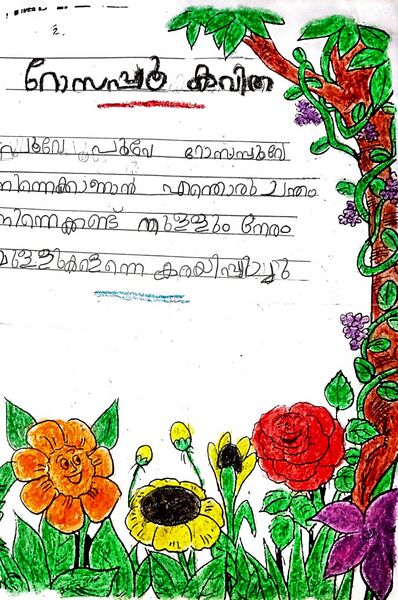 റോസപ്പൂ കവിത
പൂവേ പൂവേ റോസപ്പൂവേ
നിന്നെക്കാണാൻ എന്തൊരു ചന്തം
നിന്നെക്കണ്ട് തുള്ളും നേരം
മുള്ളുകളെന്നെ കരയിപ്പിച്ചു